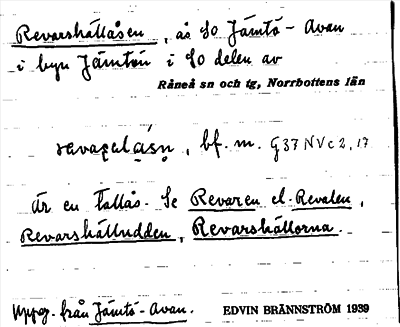 Revarshällåsen, ås SO Jämtö-Avan
i byn Jämtön i SO delen av
Råneå sn och tg, Norrbottens län
bf. m. G37 NV c 2, 17
Är en tallås. Se Revaren el. Revalen,
Revarshälludden, Revarshällorna.
Uppg. från Jämtö-Avan. EDVIN BRÄNNSTRÖM 1939